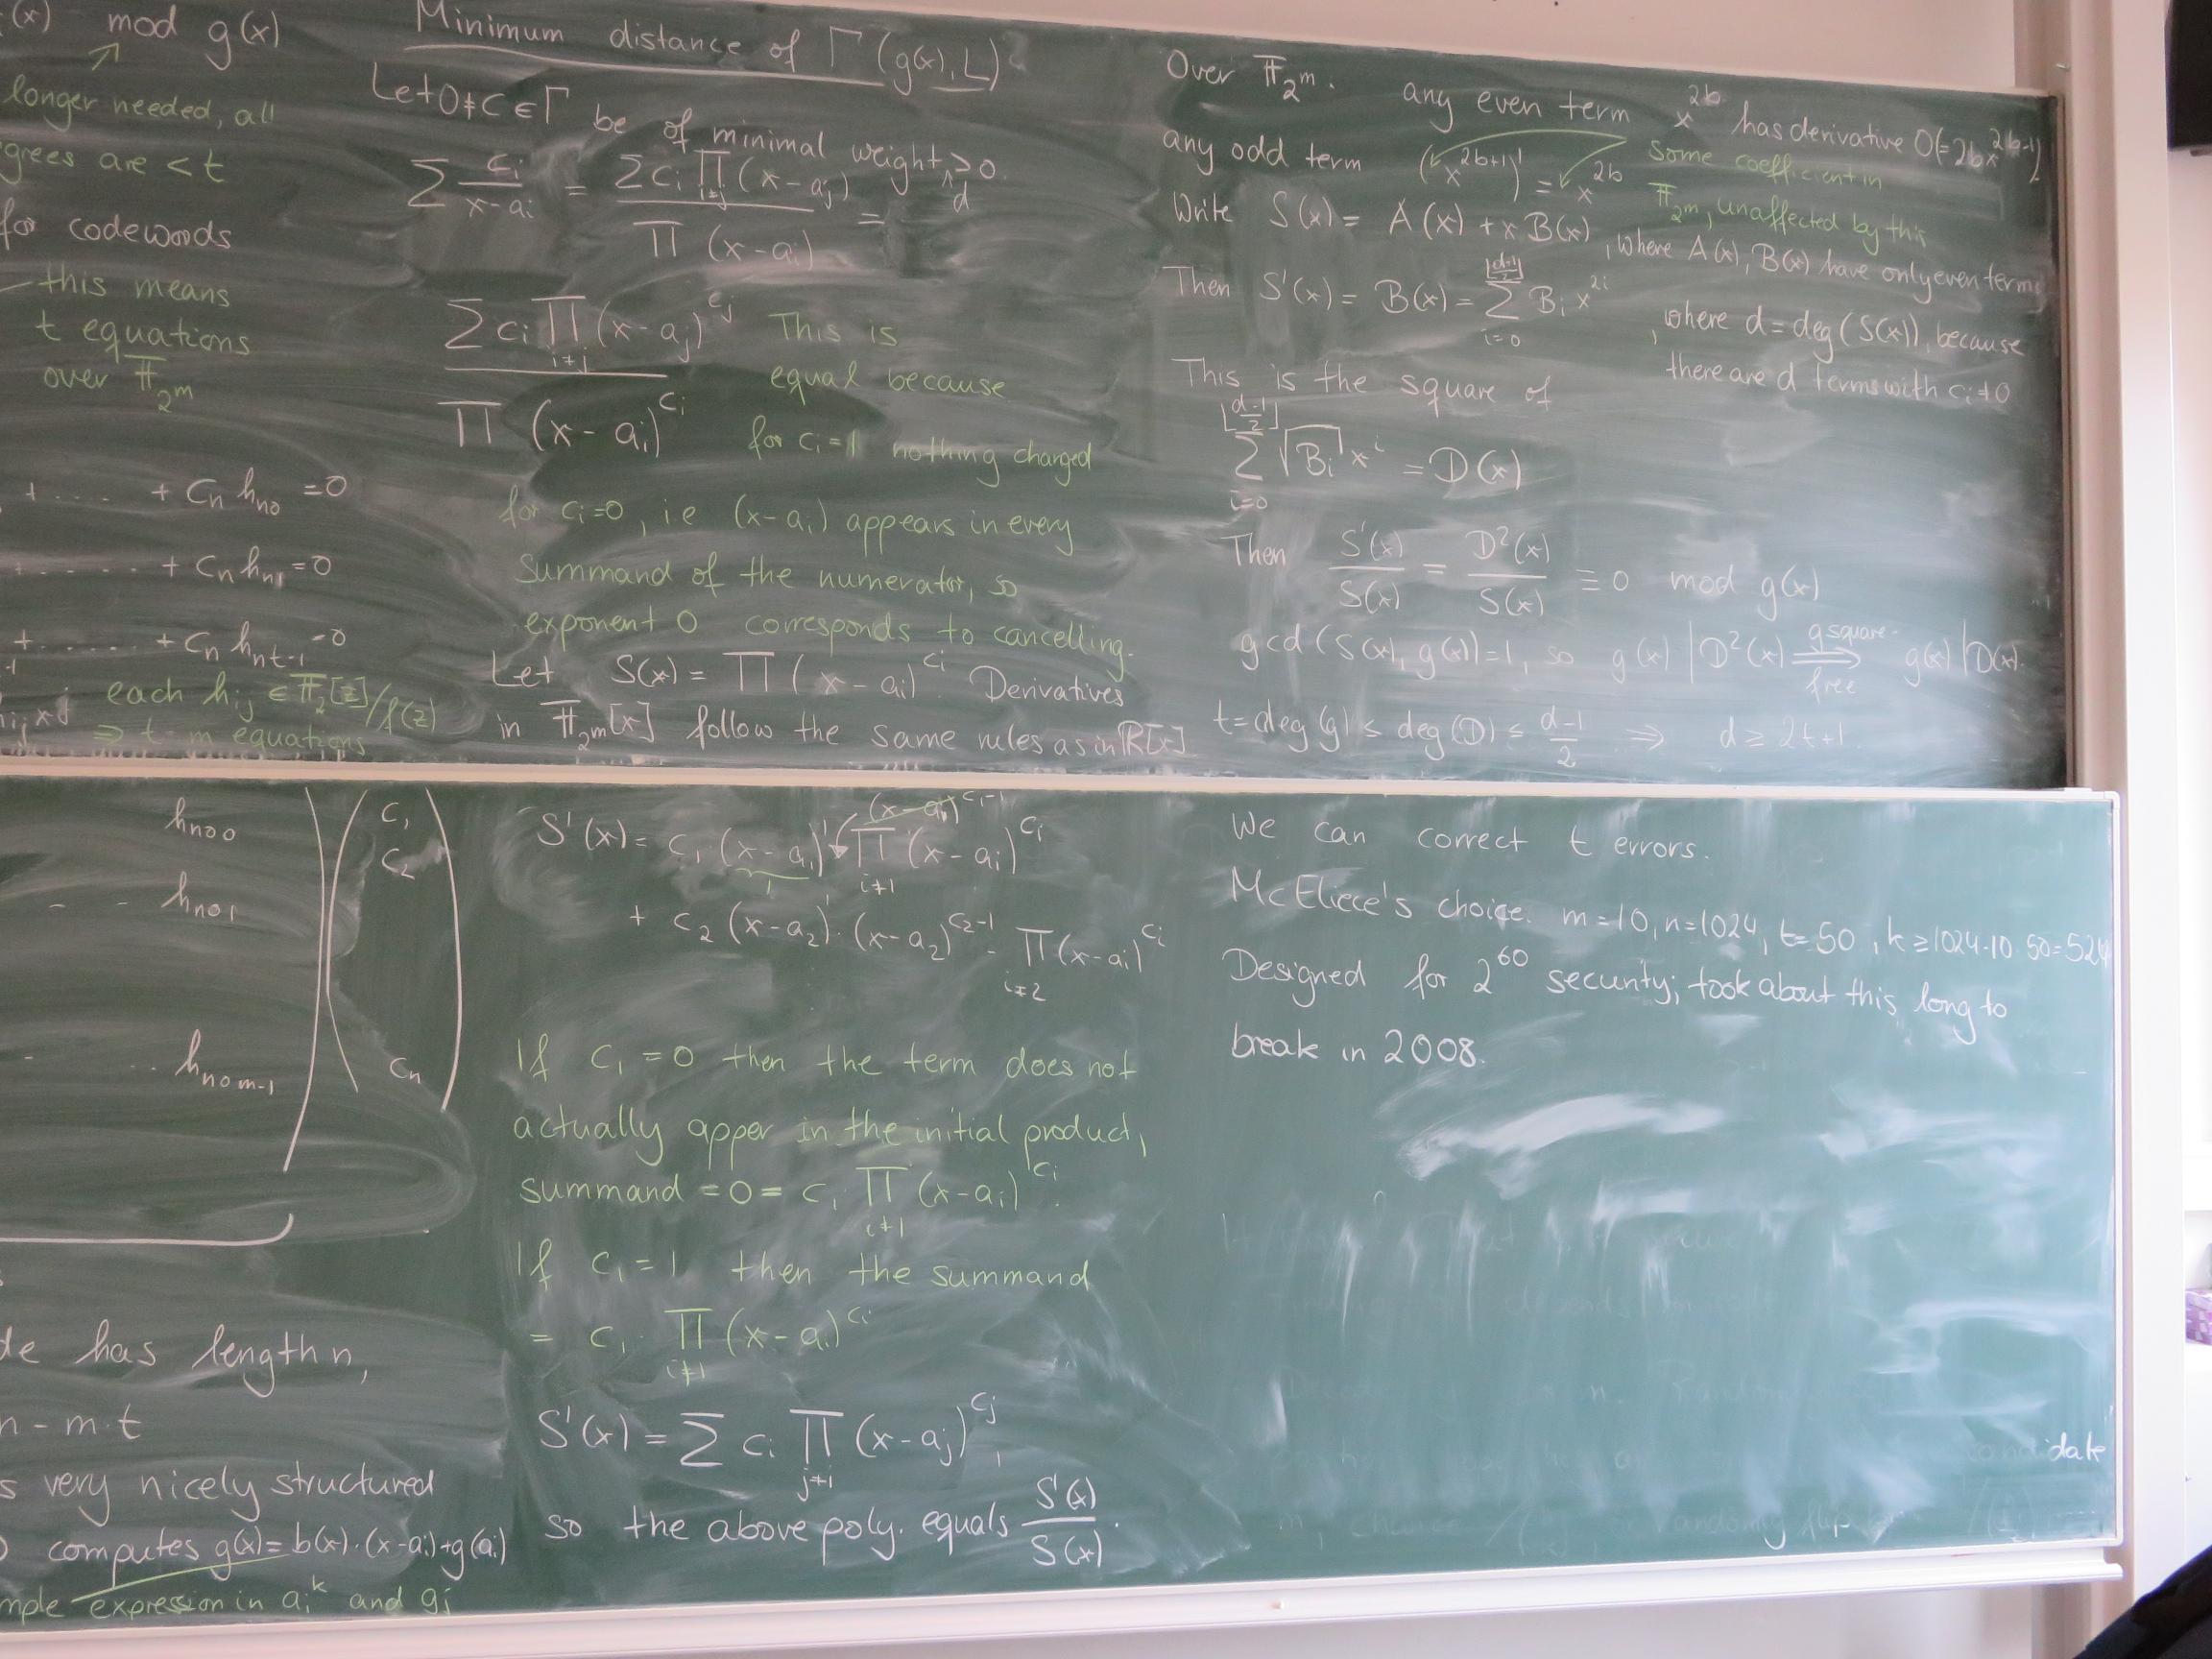 (x) mod g(x)
longer needed, all
grees are < t
for codewords
this means
t equations
over F_{2^m}
+ .... + c_n h_{n0} = 0
..... + c_n h_{n1} = 0
+ ..... + c_n h_{nt-1} = 0
each h_{ij} ∈ F_2[z]/f(z)
⇒ t·m equations
Minimum distance of Γ(g(x), L)?
Let 0 ≠ c ∈ Γ be of minimal weight d > 0.
∑ c_i/(x-a_i) = ∑ c_i ∏_{i≠j} (x-a_j) / ∏ (x-a_i) =
∑ c_i ∏_{i≠j} (x-a_j)^{c_j} / ∏ (x-a_i)^{c_i}
This is
equal because
for c_i=1 nothing changed
for c_i=0, i.e (x-a_i) appears in every
summand of the numerator, so
exponent 0 corresponds to cancelling.
Let S(x) = ∏ (x-a_i)^{c_i}. Derivatives
in F_{2^m}[x] follow the same rules as in R[x]
Over F_{2^m}: any even term x^{2b} has derivative 0 (=2bx^{2b-1})
any odd term (x^{2b+1})' = x^{2b}
some coefficient in
F_{2^m}, unaffected by this
Write S(x) = A(x) + x B(x), where A(x), B(x) have only even terms
Then S'(x) = B(x) = ∑_{i=0}^{⌊(d-1)/2⌋} B_i x^{2i}, where d = deg(S(x)), because
there are d terms with c_i≠0
This is the square of
∑_{i=0}^{⌊(d-1)/2⌋} √B_i x^i = D(x)
Then S'(x)/S(x) = D²(x)/S(x) ≡ 0 mod g(x)
gcd(S(x), g(x))=1, so g(x) | D²(x) ⇒ (g square-free) g(x) | D(x).
t = deg(g) ≤ deg(D) ≤ (d-1)/2 ⇒ d ≥ 2t+1.
h_{n00}
- - h_{n01}
- .. h_{n0m-1}
c_1
c_2
c_n
de has length n,
n - m·t
s very nicely structured
computes g(x) = b(x)·(x-a_i)+g(a_i)
mple expression in a_i^k and g_j
S'(x) = c_1 · (x-a_1)' (x-a_1)^{c_1-1} ∏_{i≠1} (x-a_i)^{c_i}
+ c_2 (x-a_2)' · (x-a_2)^{c_2-1} · ∏_{i≠2} (x-a_i)^{c_i}
If c_1 = 0 then the term does not
actually apper in the initial product,
summand = 0 = c_1 ∏_{i≠1} (x-a_i)^{c_i}.
If c_1 = 1 then the summand
= c_1 · ∏_{i≠1} (x-a_i)^{c_i}
S'(x) = ∑ c_i ∏_{j≠i} (x-a_j)^{c_j},
so the above poly. equals S'(x)/S(x).
We can correct t errors.
McEliece's choice: m=10, n=1024, t=50, k≥1024-10·50=524
Designed for 2^{60} security; took about this long to
break in 2008.